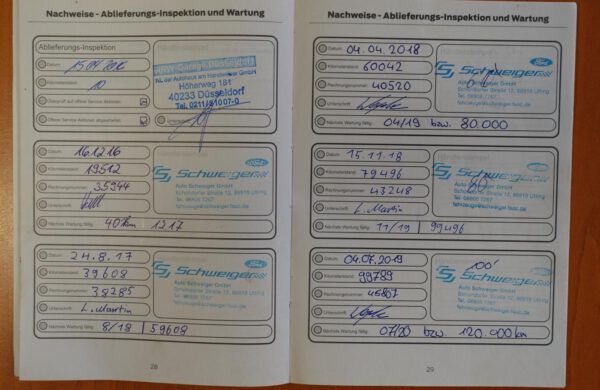 Nachweise - Ablieferungs-Inspektion und Wartung
Ablieferungs-Inspektion
Datum
Kilometerstand 10
Überprüft auf offene Service Aktionen
Offene Service Aktionen abgearbeitet
Unterschrift
AL der Autohaus am Handweiser GmbH
Höherweg 181
40233 Düsseldorf
Tel. 0211/
Datum 16.12.16
Kilometerstand 19512
Rechnungsnummer 35944
Unterschrift
Nächste Wartung fällig 40Tkm 12.17
Schweiger Ford
Auto Schweiger GmbH
Schondorfer Straße 12, 86919 Utting
Tel. 08806 7267
fahrzeuge@schweiger.fsoc.de
Datum 24.8.17
Kilometerstand 39608
Rechnungsnummer 38285
Unterschrift L. Martin
Nächste Wartung fällig 8/18 59608
Schweiger Ford
Auto Schweiger GmbH
Schondorfer Straße 12, 86919 Utting
Tel. 08806 7267
fahrzeuge@schweiger.fsoc.de
28
Nachweise - Ablieferungs-Inspektion und Wartung
Datum 04.04.2018
Kilometerstand 60042
Rechnungsnummer 40520
Unterschrift
Nächste Wartung fällig 04/19 bzw. 80.000
Schweiger Ford
Auto Schweiger GmbH
Schondorfer Straße 12, 86919 Utting
Tel. 08806 7267
fahrzeuge@schweiger.fsoc.de
Datum 15.11.18
Kilometerstand 79496
Rechnungsnummer 43248
Unterschrift L. Martin
Nächste Wartung fällig 11/19 99496
Schweiger Ford
Auto Schweiger GmbH
Schondorfer Straße 12, 86919 Utting
Tel. 08806 7267
fahrzeuge@schweiger.fsoc.de
Datum 04.07.2019
Kilometerstand 99789
Rechnungsnummer 45807
Unterschrift
Nächste Wartung fällig 07/20 bzw. 120.000km
100'
Schweiger Ford
Auto Schweiger GmbH
Schondorfer Straße 12, 86919 Utting
Tel. 08806 7267
fahrzeuge@schweiger.fsoc.de
29